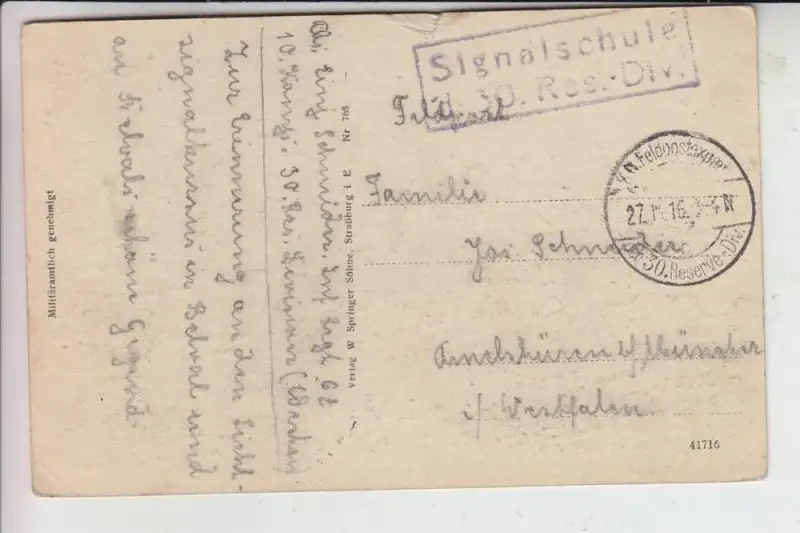 Signalschule
d. 30. Res.-Div.
Feldpost
K. D. Feldpostexped.
27.11.16. N
der 30. Reserve-Div.
Familie
Jos Schneider
Amelsbüren b/Münster
i/Westfalen.
41716
Schneider. Inf Regt
10. Komp. 30. Res. Division
Zur Erinnerung an den Licht-
signalkursus in Belval und
an Belvals schöne Gegend
Verlag W Springer Söhne. Straßburg i E Nr 768
Militäramtlich genehmigt